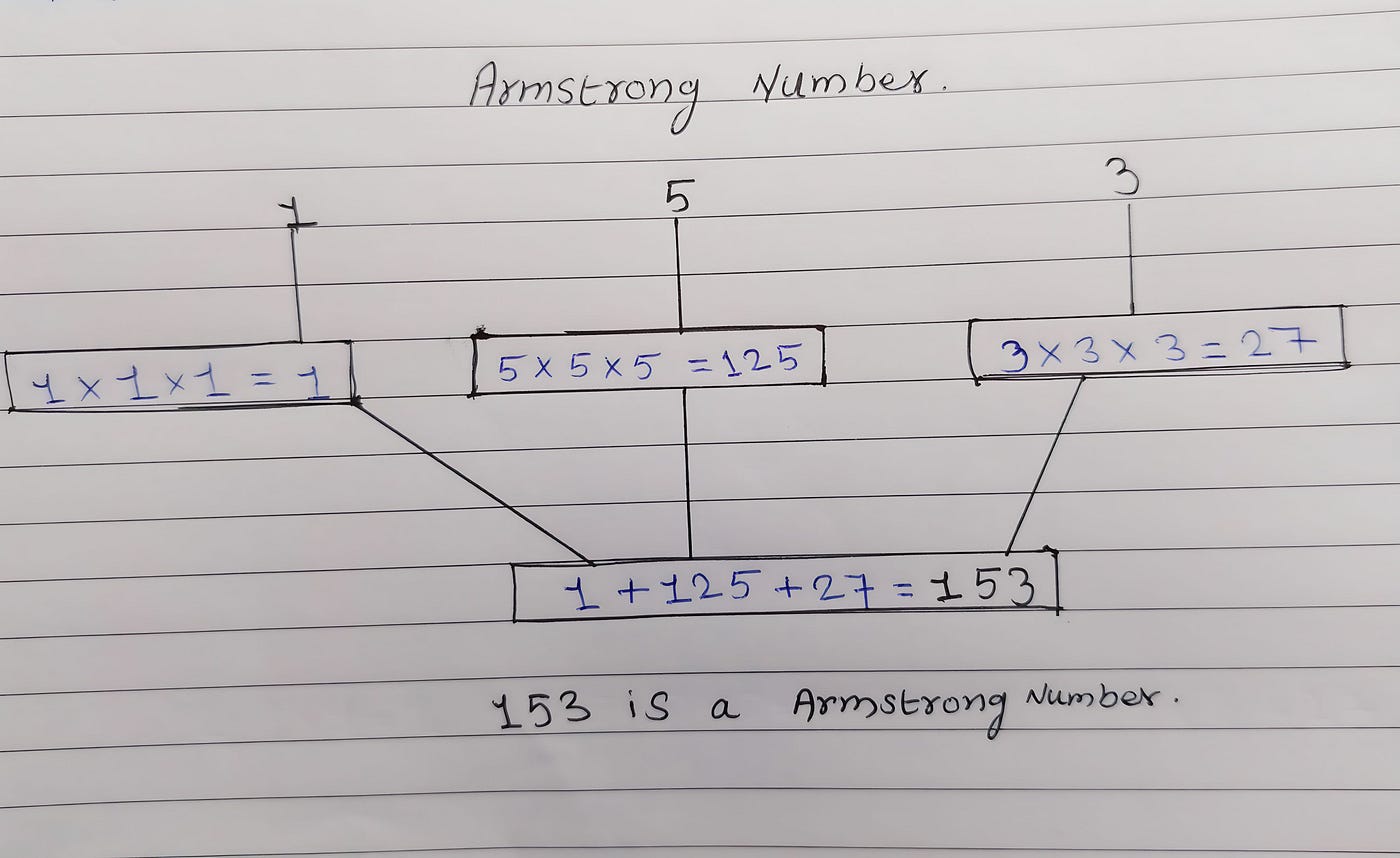 Armstrong Number.
1 5 3
1 × 1 × 1 = 1
5 × 5 × 5 = 125
3 × 3 × 3 = 27
1 + 125 + 27 = 153
153 is a Armstrong Number.